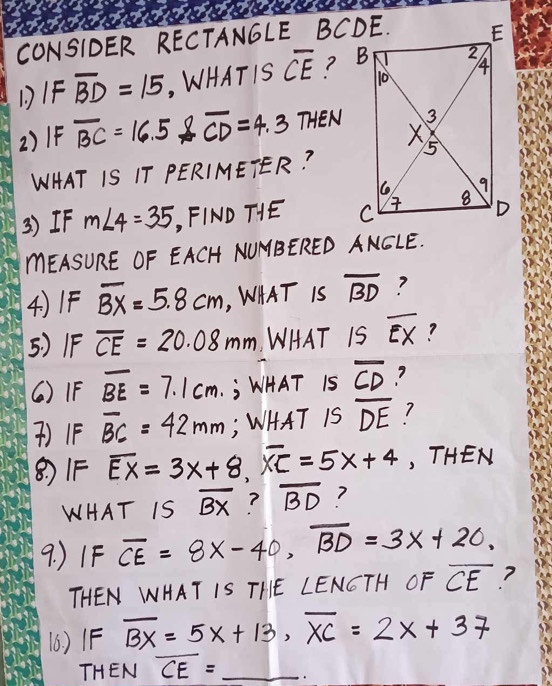 CONSIDER RECTANGLE BCDE.
1.) IF B̅D̅ = 15, WHAT IS C̅E̅ ?
2) IF B̅C̅ = 16.5 & C̅D̅ = 4.3 THEN
WHAT IS IT PERIMETER ?
3) IF m∠4 = 35, FIND THE
MEASURE OF EACH NUMBERED ANGLE.
4.) IF B̅X̅ = 5.8 cm, WHAT IS B̅D̅ ?
5.) IF C̅E̅ = 20.08 mm, WHAT IS E̅X̅ ?
6) IF B̅E̅ = 7.1 cm. ; WHAT IS C̅D̅ ?
7) IF B̅C̅ = 42 mm ; WHAT IS D̅E̅ ?
8.) IF E̅X̅ = 3x + 8, X̅C̅ = 5x + 4 , THEN
WHAT IS B̅X̅ ? B̅D̅ ?
9.) IF C̅E̅ = 8x - 40, B̅D̅ = 3x + 20,
THEN WHAT IS THE LENGTH OF C̅E̅ ?
10.) IF B̅X̅ = 5x + 13 , X̅C̅ = 2x + 37
THEN C̅E̅ = ______.
B 1 2 E
10 4
X 3
5
6 9
C 7 8 D